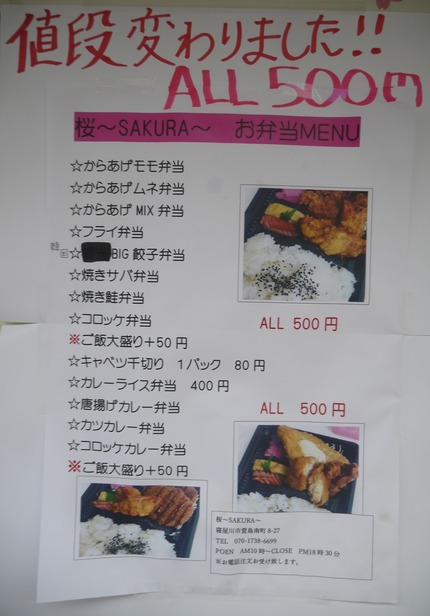 値段変わりました!!
ALL 500円
桜～SAKURA～ お弁当MENU
☆からあげモモ弁当
☆からあげムネ弁当
☆からあげMIX弁当
☆フライ弁当
韓国
☆BIG餃子弁当
☆焼きサバ弁当
☆焼き鮭弁当
☆コロッケ弁当
ALL 500円
※ご飯大盛り＋50円
☆キャベツ千切り 1パック 80円
☆カレーライス弁当 400円
☆唐揚げカレー弁当
ALL 500円
☆カツカレー弁当
☆コロッケカレー弁当
※ご飯大盛り＋50円
桜～SAKURA～
寝屋川市萱島南町8-27
TEL 070-1738-6699
POEN AM10時～CLOSE PM18時30分
※お電話注文お受け致します。